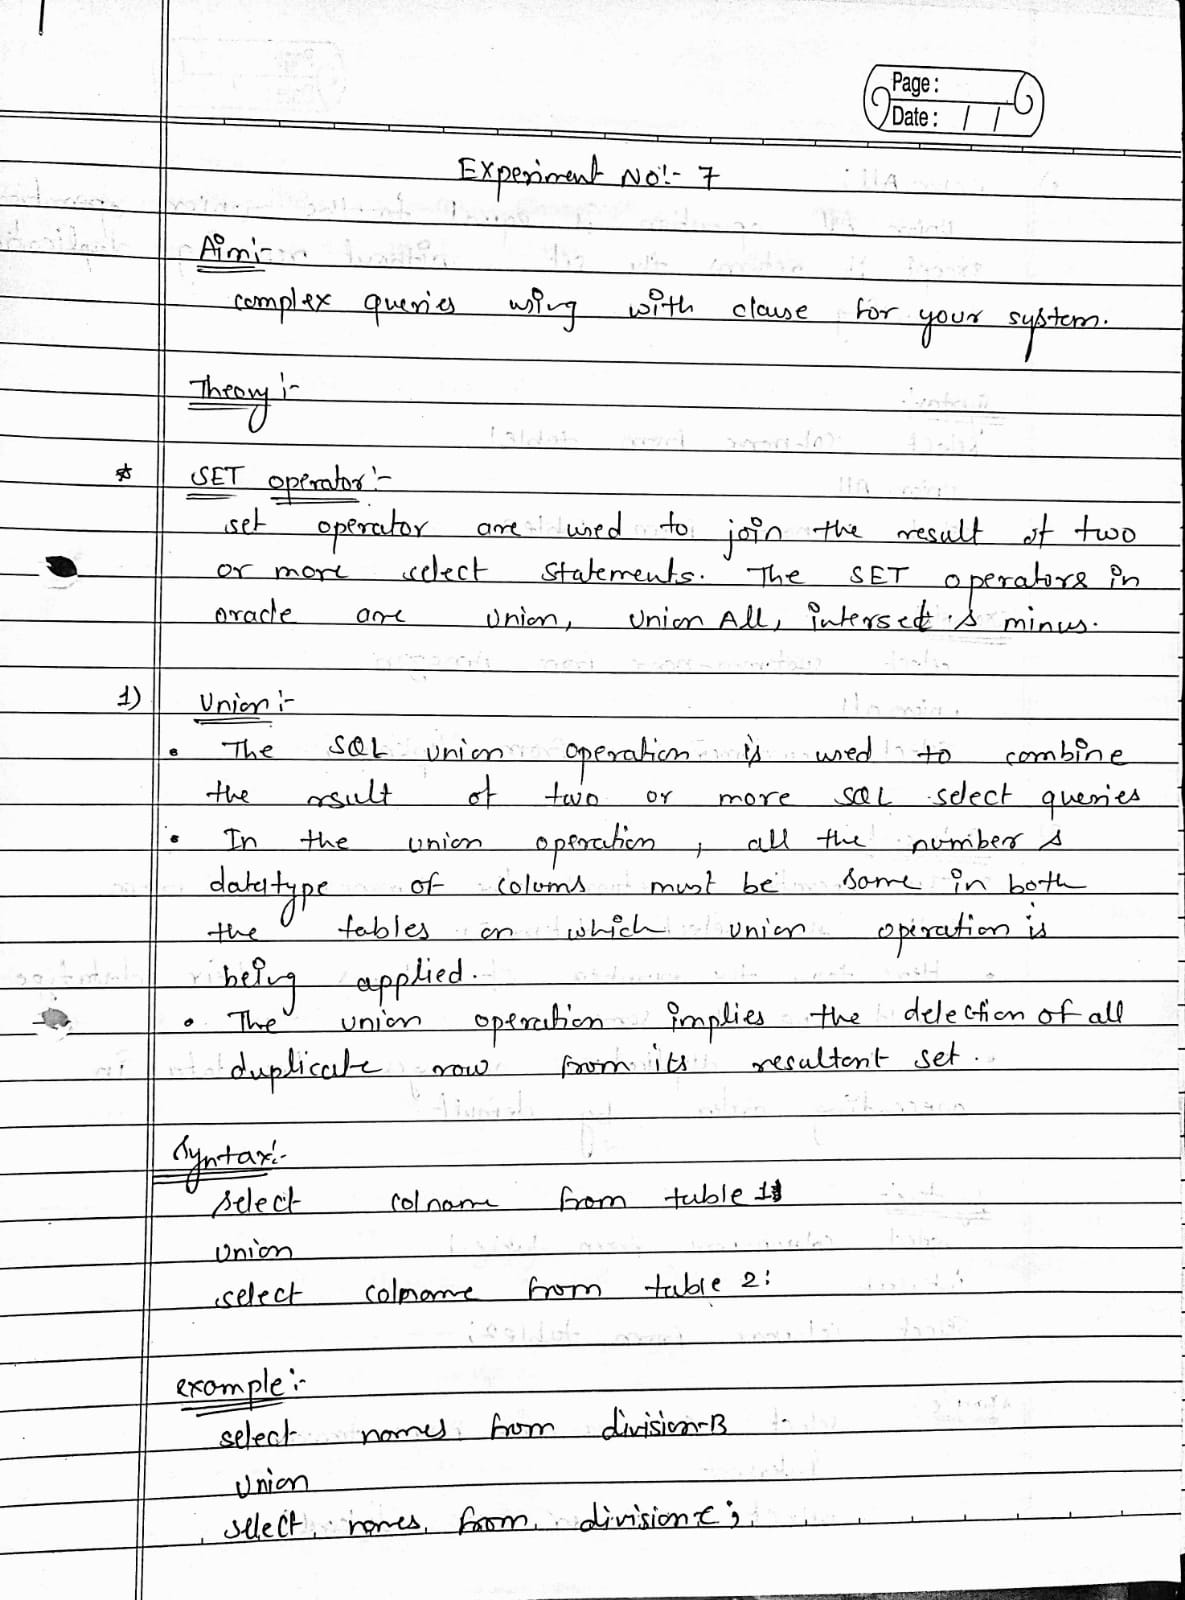 Page :
Date : / /
Experiment No:- 7
Aim:-
complex queries using with clause for your system.
Theory :-
* SET operator:-
set operator are used to join the result of two
or more select statements. The SET operators in
oracle are union, union All, intersect & minus.
1) Union :-
• The SQL union operation is used to combine
the rsult of two or more SQL select queries
• In the union operation, all the number &
datatype of colums must be same in both
the tables on which union operation is
being applied.
• The union operation implies the delection of all
duplicate row from its resultant set.
Syntax:-
select colname from table 1
union
select colname from table 2:
example :-
select names from division-B
Union
select names from division-C ;